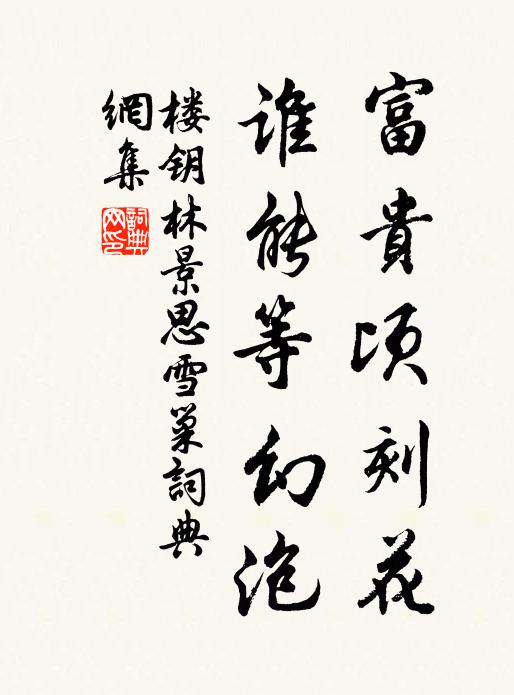 富貴頃刻花
谁能等幻泡
楼钥林景思雪巢詞典
網集
詞典
网印